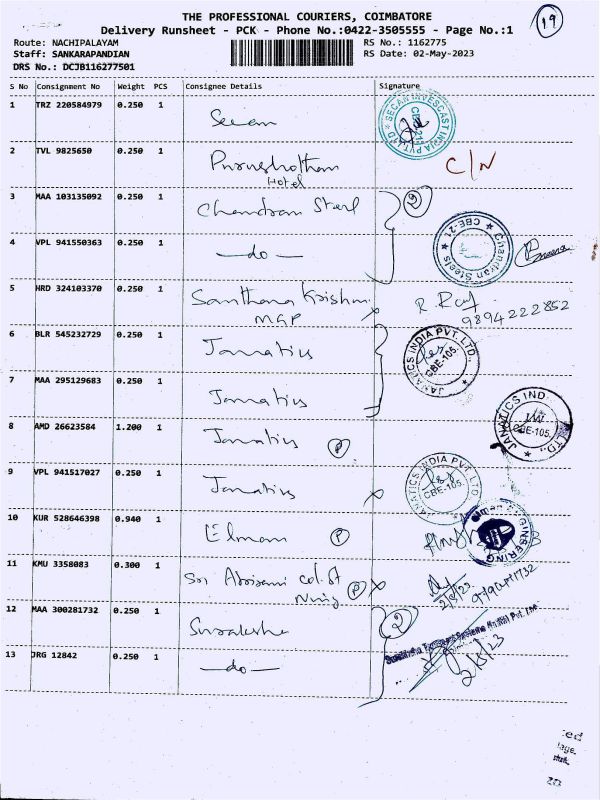 THE PROFESSIONAL COURIERS, COIMBATORE
19
Delivery Runsheet - PCK - Phone No.:0422-3505555 - Page No.:1
Route: NACHIPALAYAM
RS No.: 1162775
Staff: SANKARAPANDIAN
RS Date: 02-May-2023
DRS No.: DCJB116277501
S No Consignment No Weight PCS Consignee Details Signature
1 TRZ 220584979 0.250 1 Secan
SECAN INVESCAST INDIA PVT LTD
2 TVL 9825650 0.250 1 Purushotham C/N
Hotel
3 MAA 103135092 0.250 1 Chandran Steel 2
4 VPL 941550363 0.250 1 -do-
Chandran Steels CBE-21
5 HRD 324103370 0.250 1 Santhana Krishna
MGP
9894222852
6 BLR 545232729 0.250 1 Janatics
JANATICS INDIA PVT. LTD., CBE-105.
7 MAA 295129683 0.250 1 Janatics
8 AMD 26623584 1.200 1 Janatics P
JANATICS IND LTD., CBE-105.
9 VPL 941517027 0.250 1 Janatics
JANATICS INDIA PVT CBE-105.
10 KUR 528646398 0.940 1 Elman P
11 KMU 3358083 0.300 1 Sri Abirami col. of P
Nursing
2/5/23
12 MAA 300281732 0.250 1 Suraksha 2
13 JRG 12842 0.250 1 -do-
2/5/23